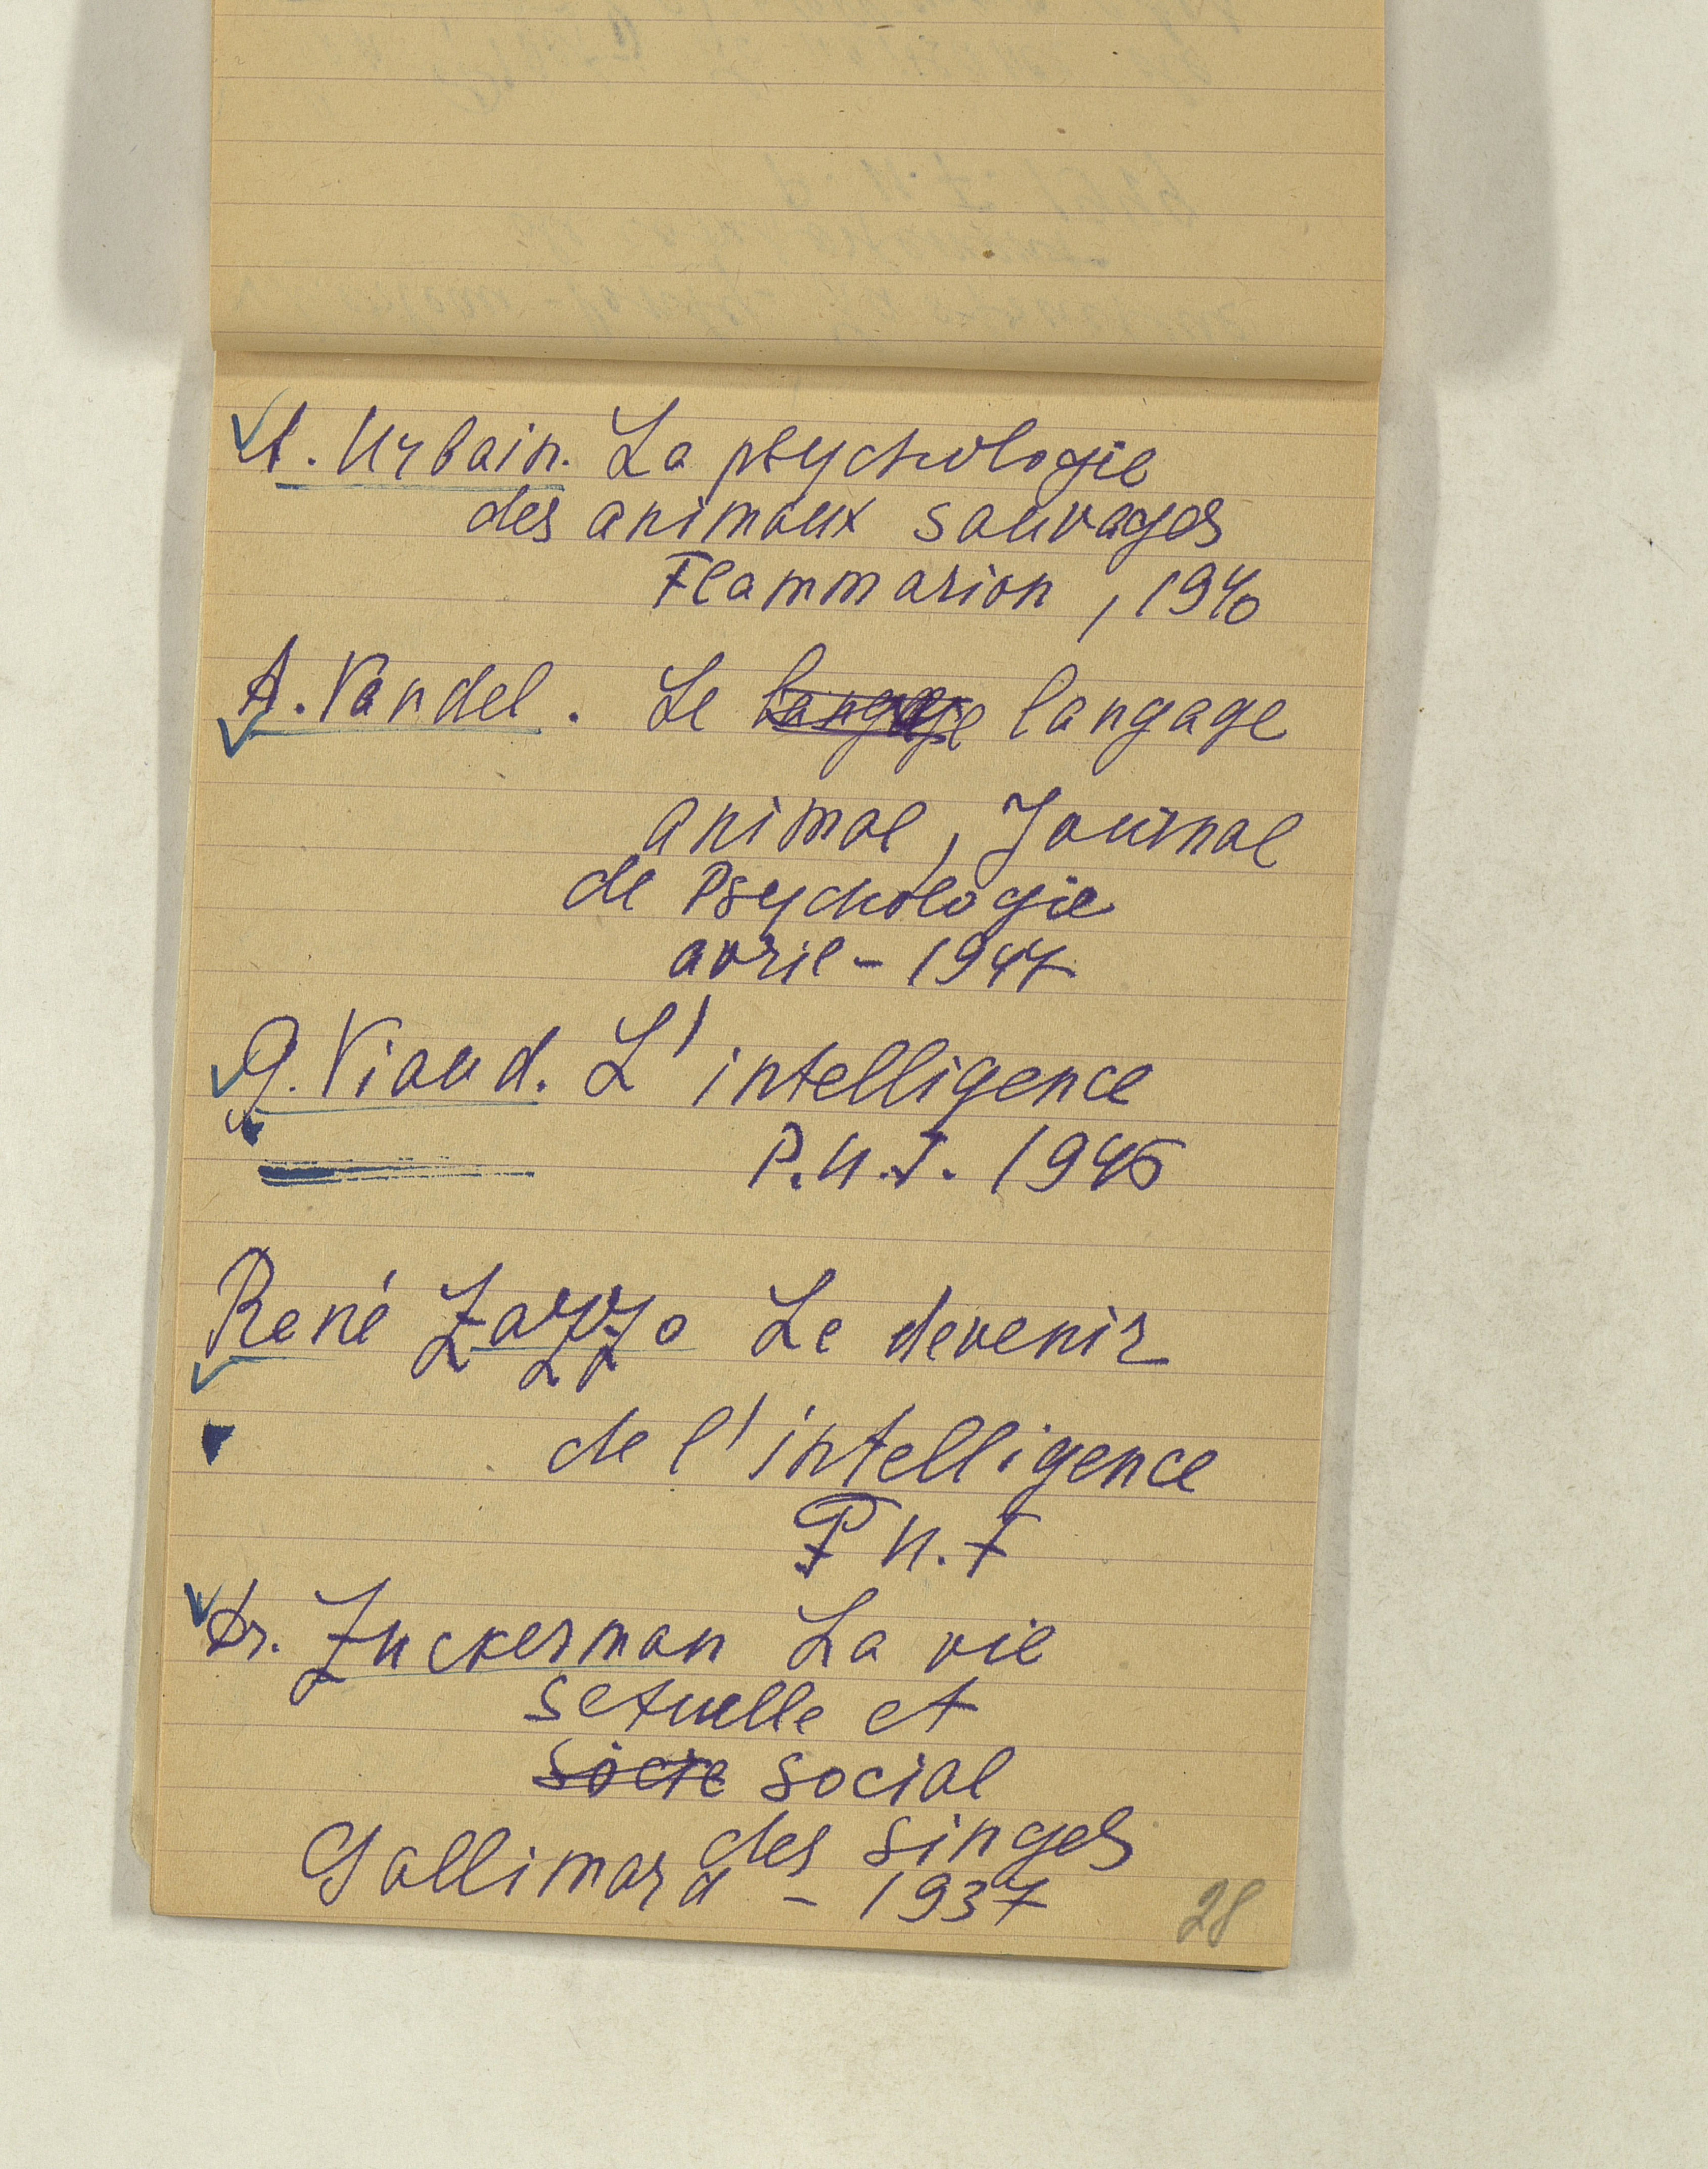 A. Urbain. La psychologie
des animaux sauvages
Flammarion, 1940
A. Vandel. Le langage langage
animal, Journal
de Psychologie
avril - 1947
G. Viaud. L'intelligence
P.U.F. 1945
René Zazzo Le devenir
de l'intelligence
P U.F
Dr. Zuckerman La vie
sexuelle et
socie social
des singes
Gallimard - 1937
28